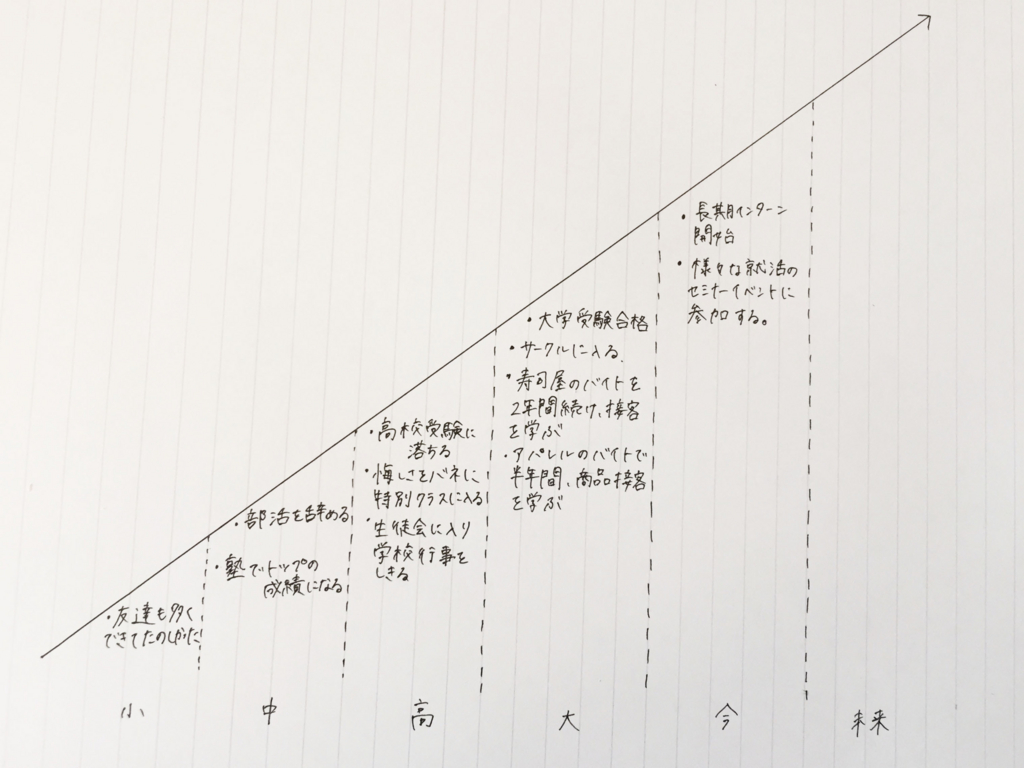 ・友達も多く
できてたのしかった
・部活を辞める
・塾でトップの
成績になる
・高校受験に
落ちる
・悔しさをバネに
特別クラスに入る
・生徒会に入り
学校行事を
しきる
・大学受験合格
・サークルに入る
・寿司屋のバイトを
2年間続け、接客
を学ぶ
・アパレルのバイトで
半年間、商品接客
を学ぶ
・長期インターン
開始
・様々な就活の
セミナーイベントに
参加する。
小
中
高
大
今
未来